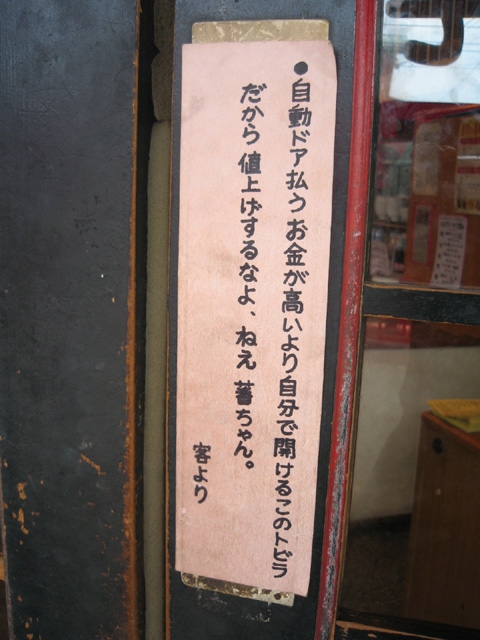 ●自動ドア払うお金が高いより自分で開けるこのトビラ
だから値上げするなよ、ねえ蕃ちゃん。
客より